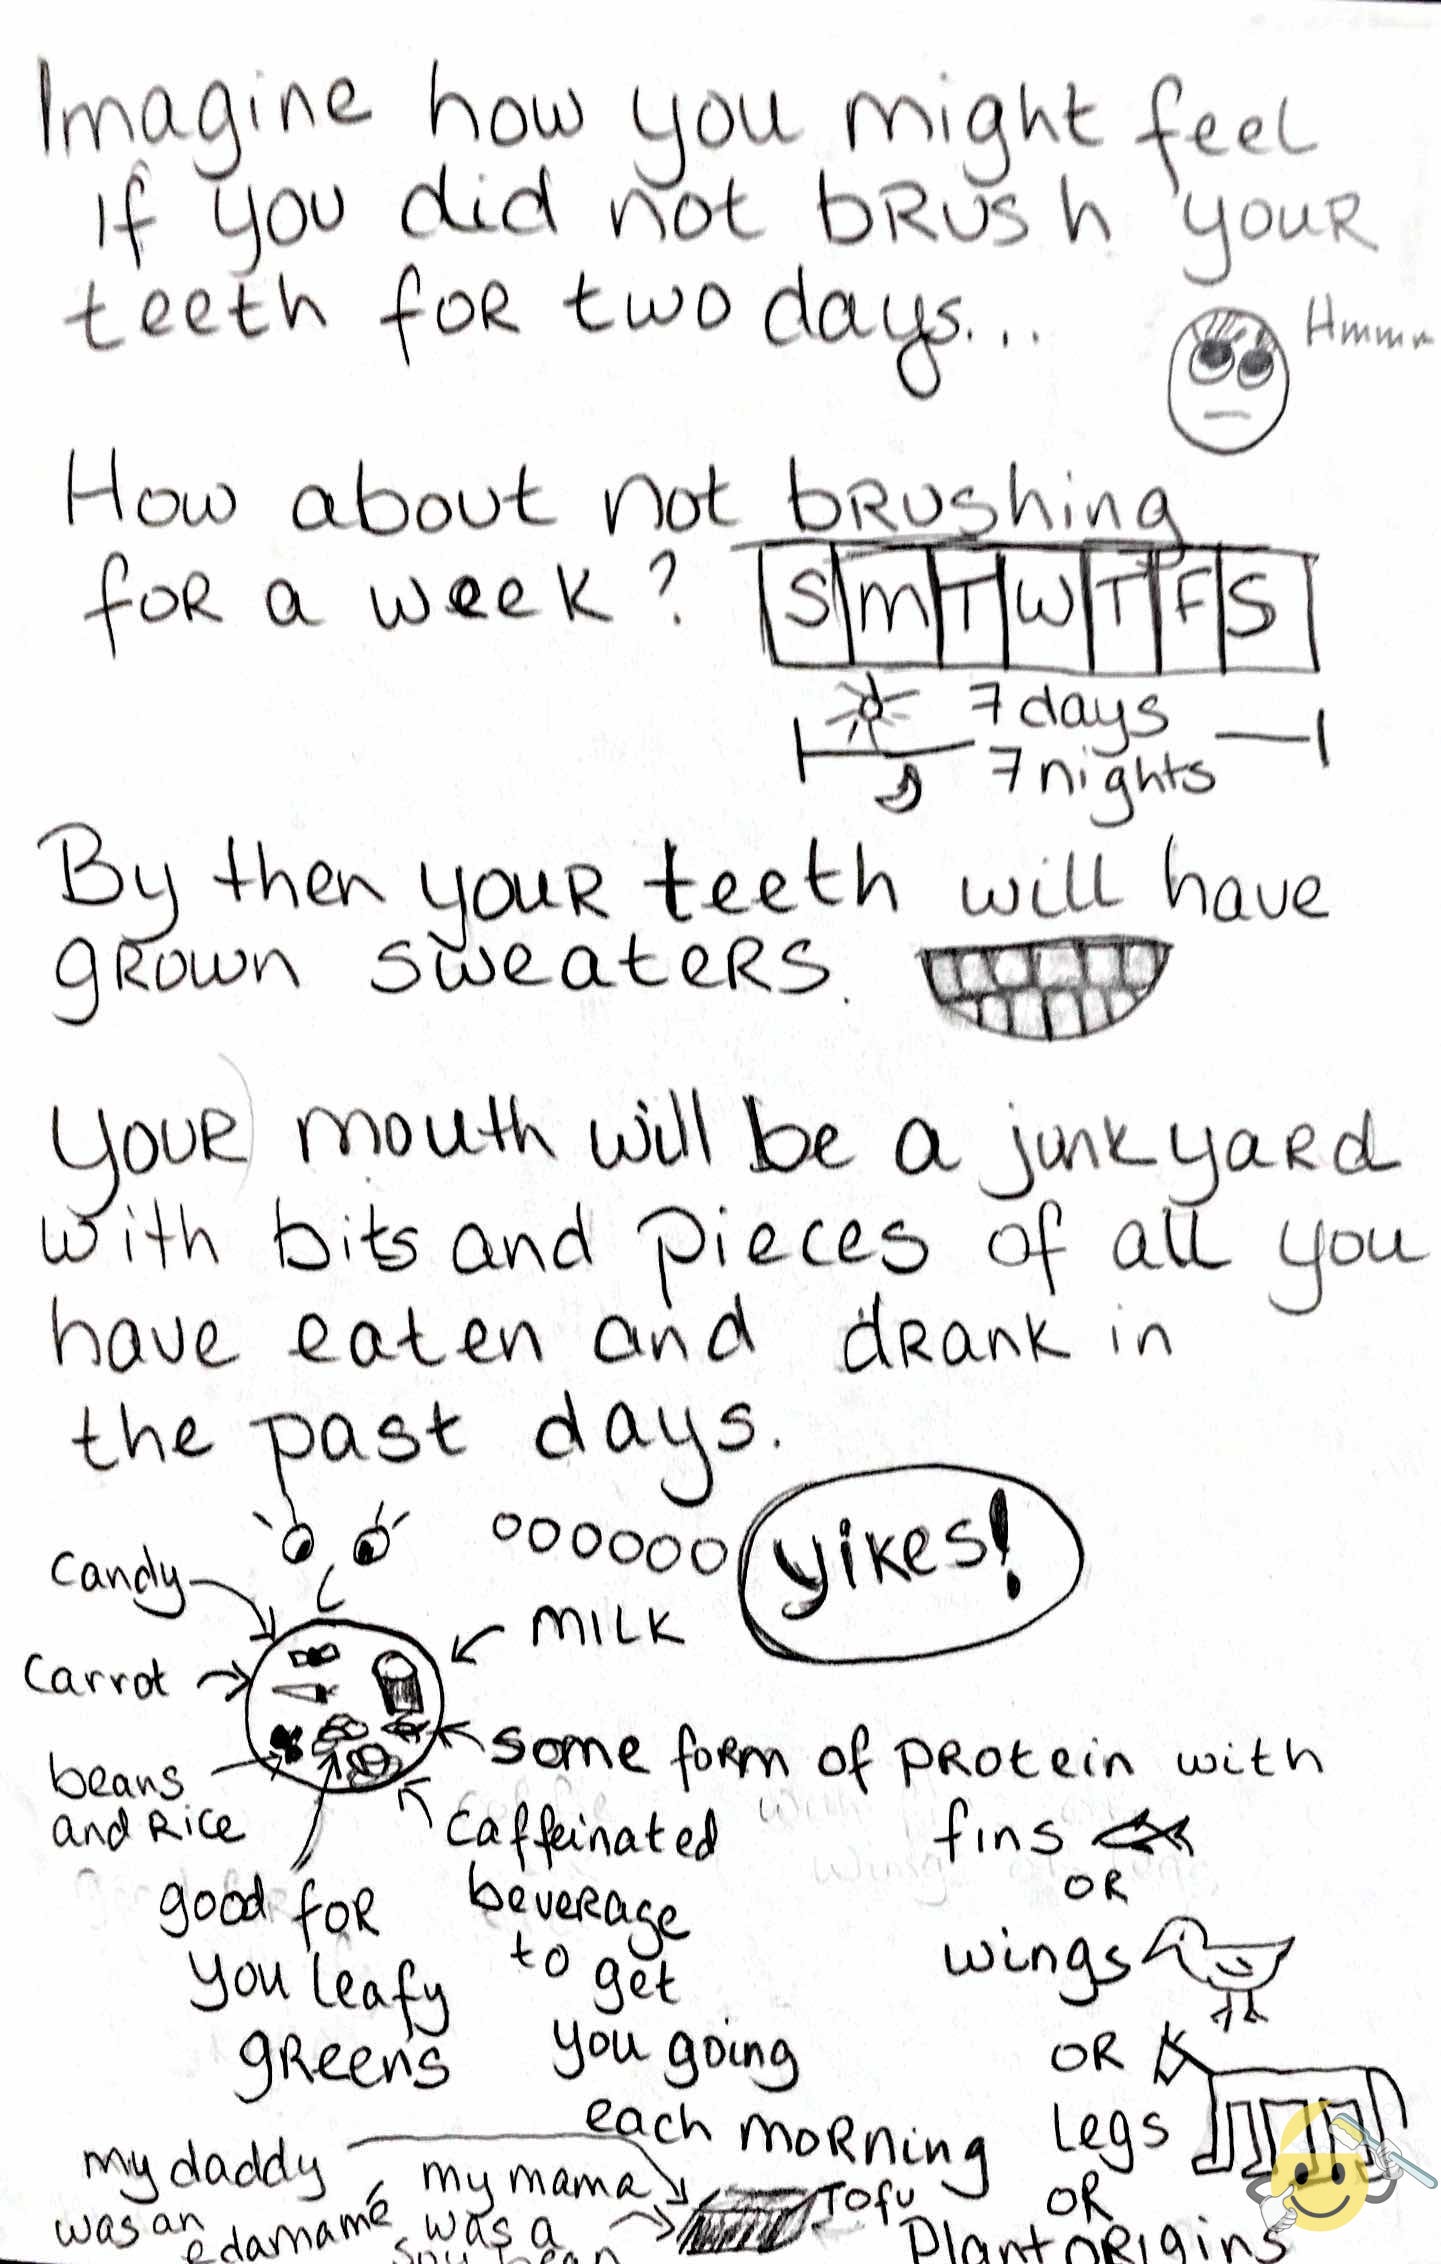 Imagine how you might feel
if you did not brush your
teeth for two days...
Hmmm
How about not brushing
for a week?
S M T W T F S
7 days
7 nights
By then your teeth will have
grown sweaters.
Your mouth will be a junkyard
with bits and pieces of all you
have eaten and drank in
the past days.
yikes!
candy
MILK
carrot
some form of protein with
fins
OR
wings
OR
legs
OR
Plant origins
beans
and Rice
good for
you leafy
greens
caffeinated
beverage
to get
you going
each morning
my daddy
was an
edamamé
my mama
was a
soy bean
Tofu